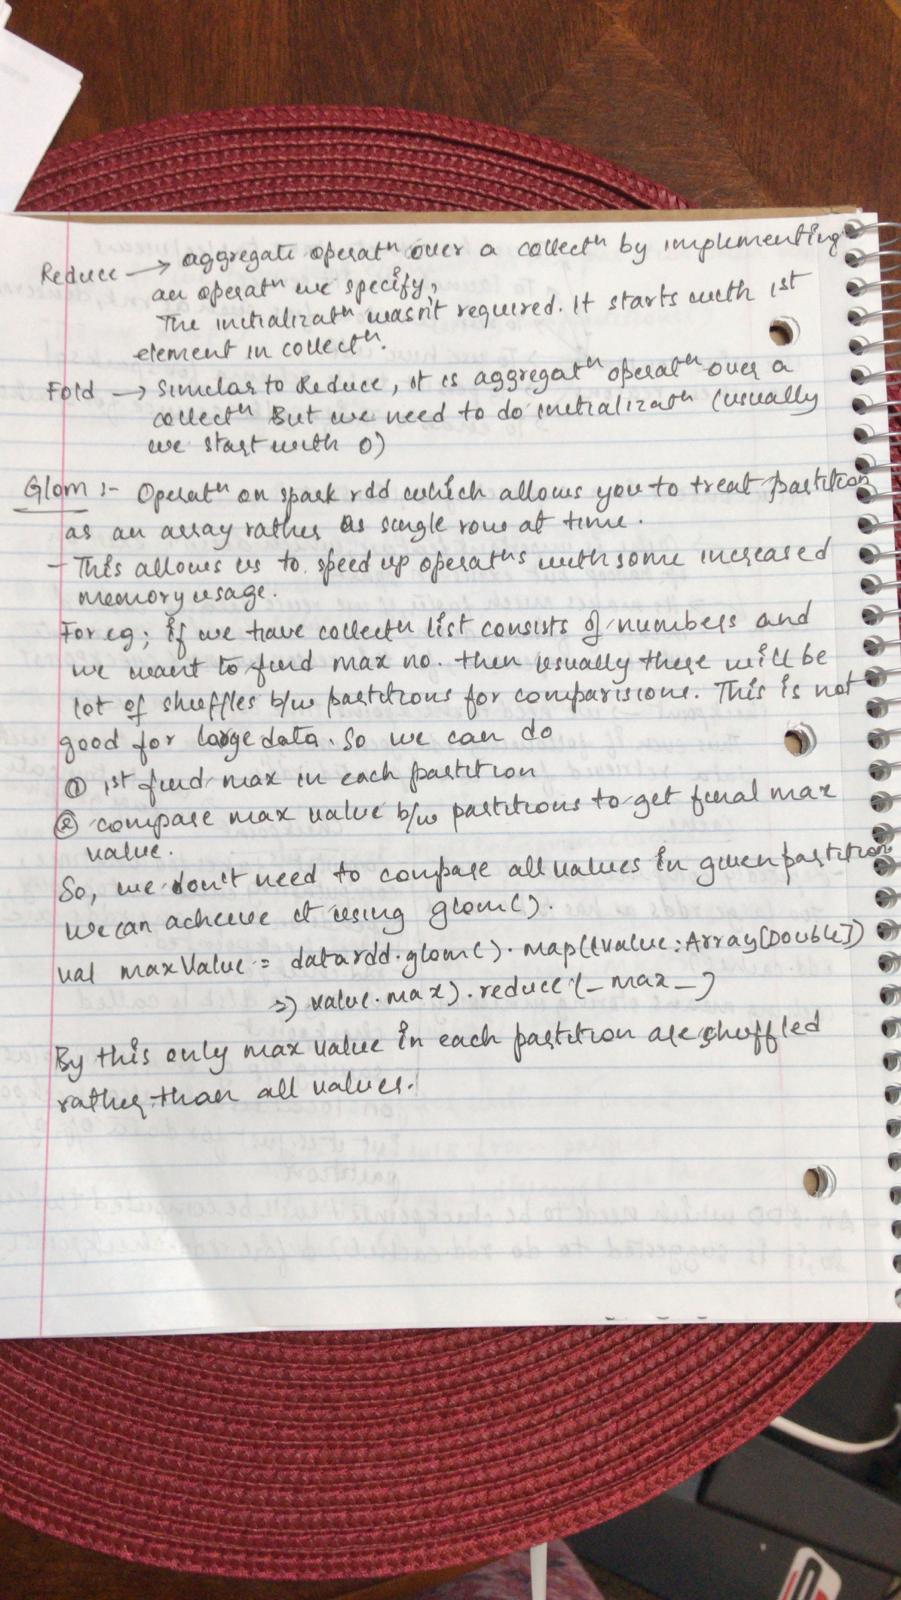 Reduce → aggregate operatⁿ over a collectⁿ by implementing
an operatⁿ we specify,
The initializatⁿ wasn't required. It starts with 1st
element in collectⁿ.
Fold → Similar to Reduce, it is aggregatⁿ operatⁿ over a
collectⁿ But we need to do initializatⁿ (usually
we start with 0)
Glom :- Operatⁿ on spark rdd which allows you to treat partition
as an array rather as single row at time.
- This allows us to speed up operatⁿs with some increased
memory usage.
For eg; if we have collectⁿ list consists of numbers and
we want to find max no. then usually there will be
lot of shuffles b/w partitions for comparisions. This is not
good for large data. So we can do
① 1st find max in each partition
② compare max value b/w partitions to get final max
value.
So, we don't need to compare all values in given partition
we can achieve it using glom().
val maxValue = datardd.glom().map((value:Array[Double])
=> value.max).reduce(_ max _)
By this only max value in each partition are shuffled
rather than all values.